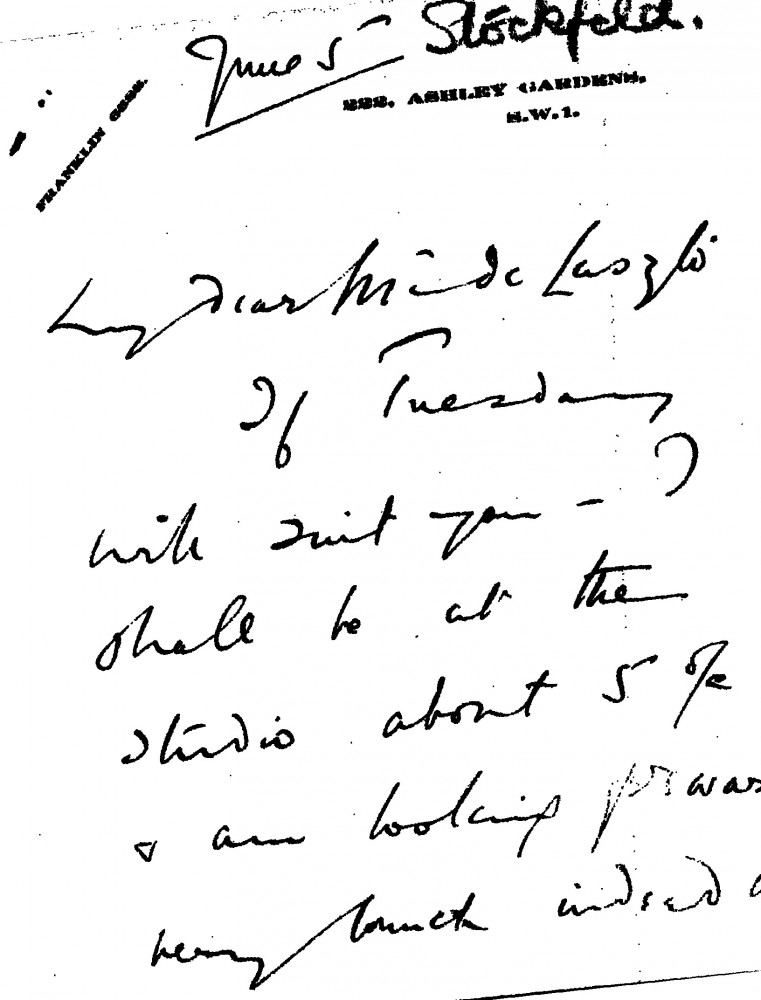 Stockfeld.
June 5
222, ASHLEY GARDENS,
S.W.1.
FRANKLIN 6222.
My dear Mr de Laszló
If Tuesday
will suit you – I
shall be at the
studio about 5 o/c
& am looking forwar
very much indeed